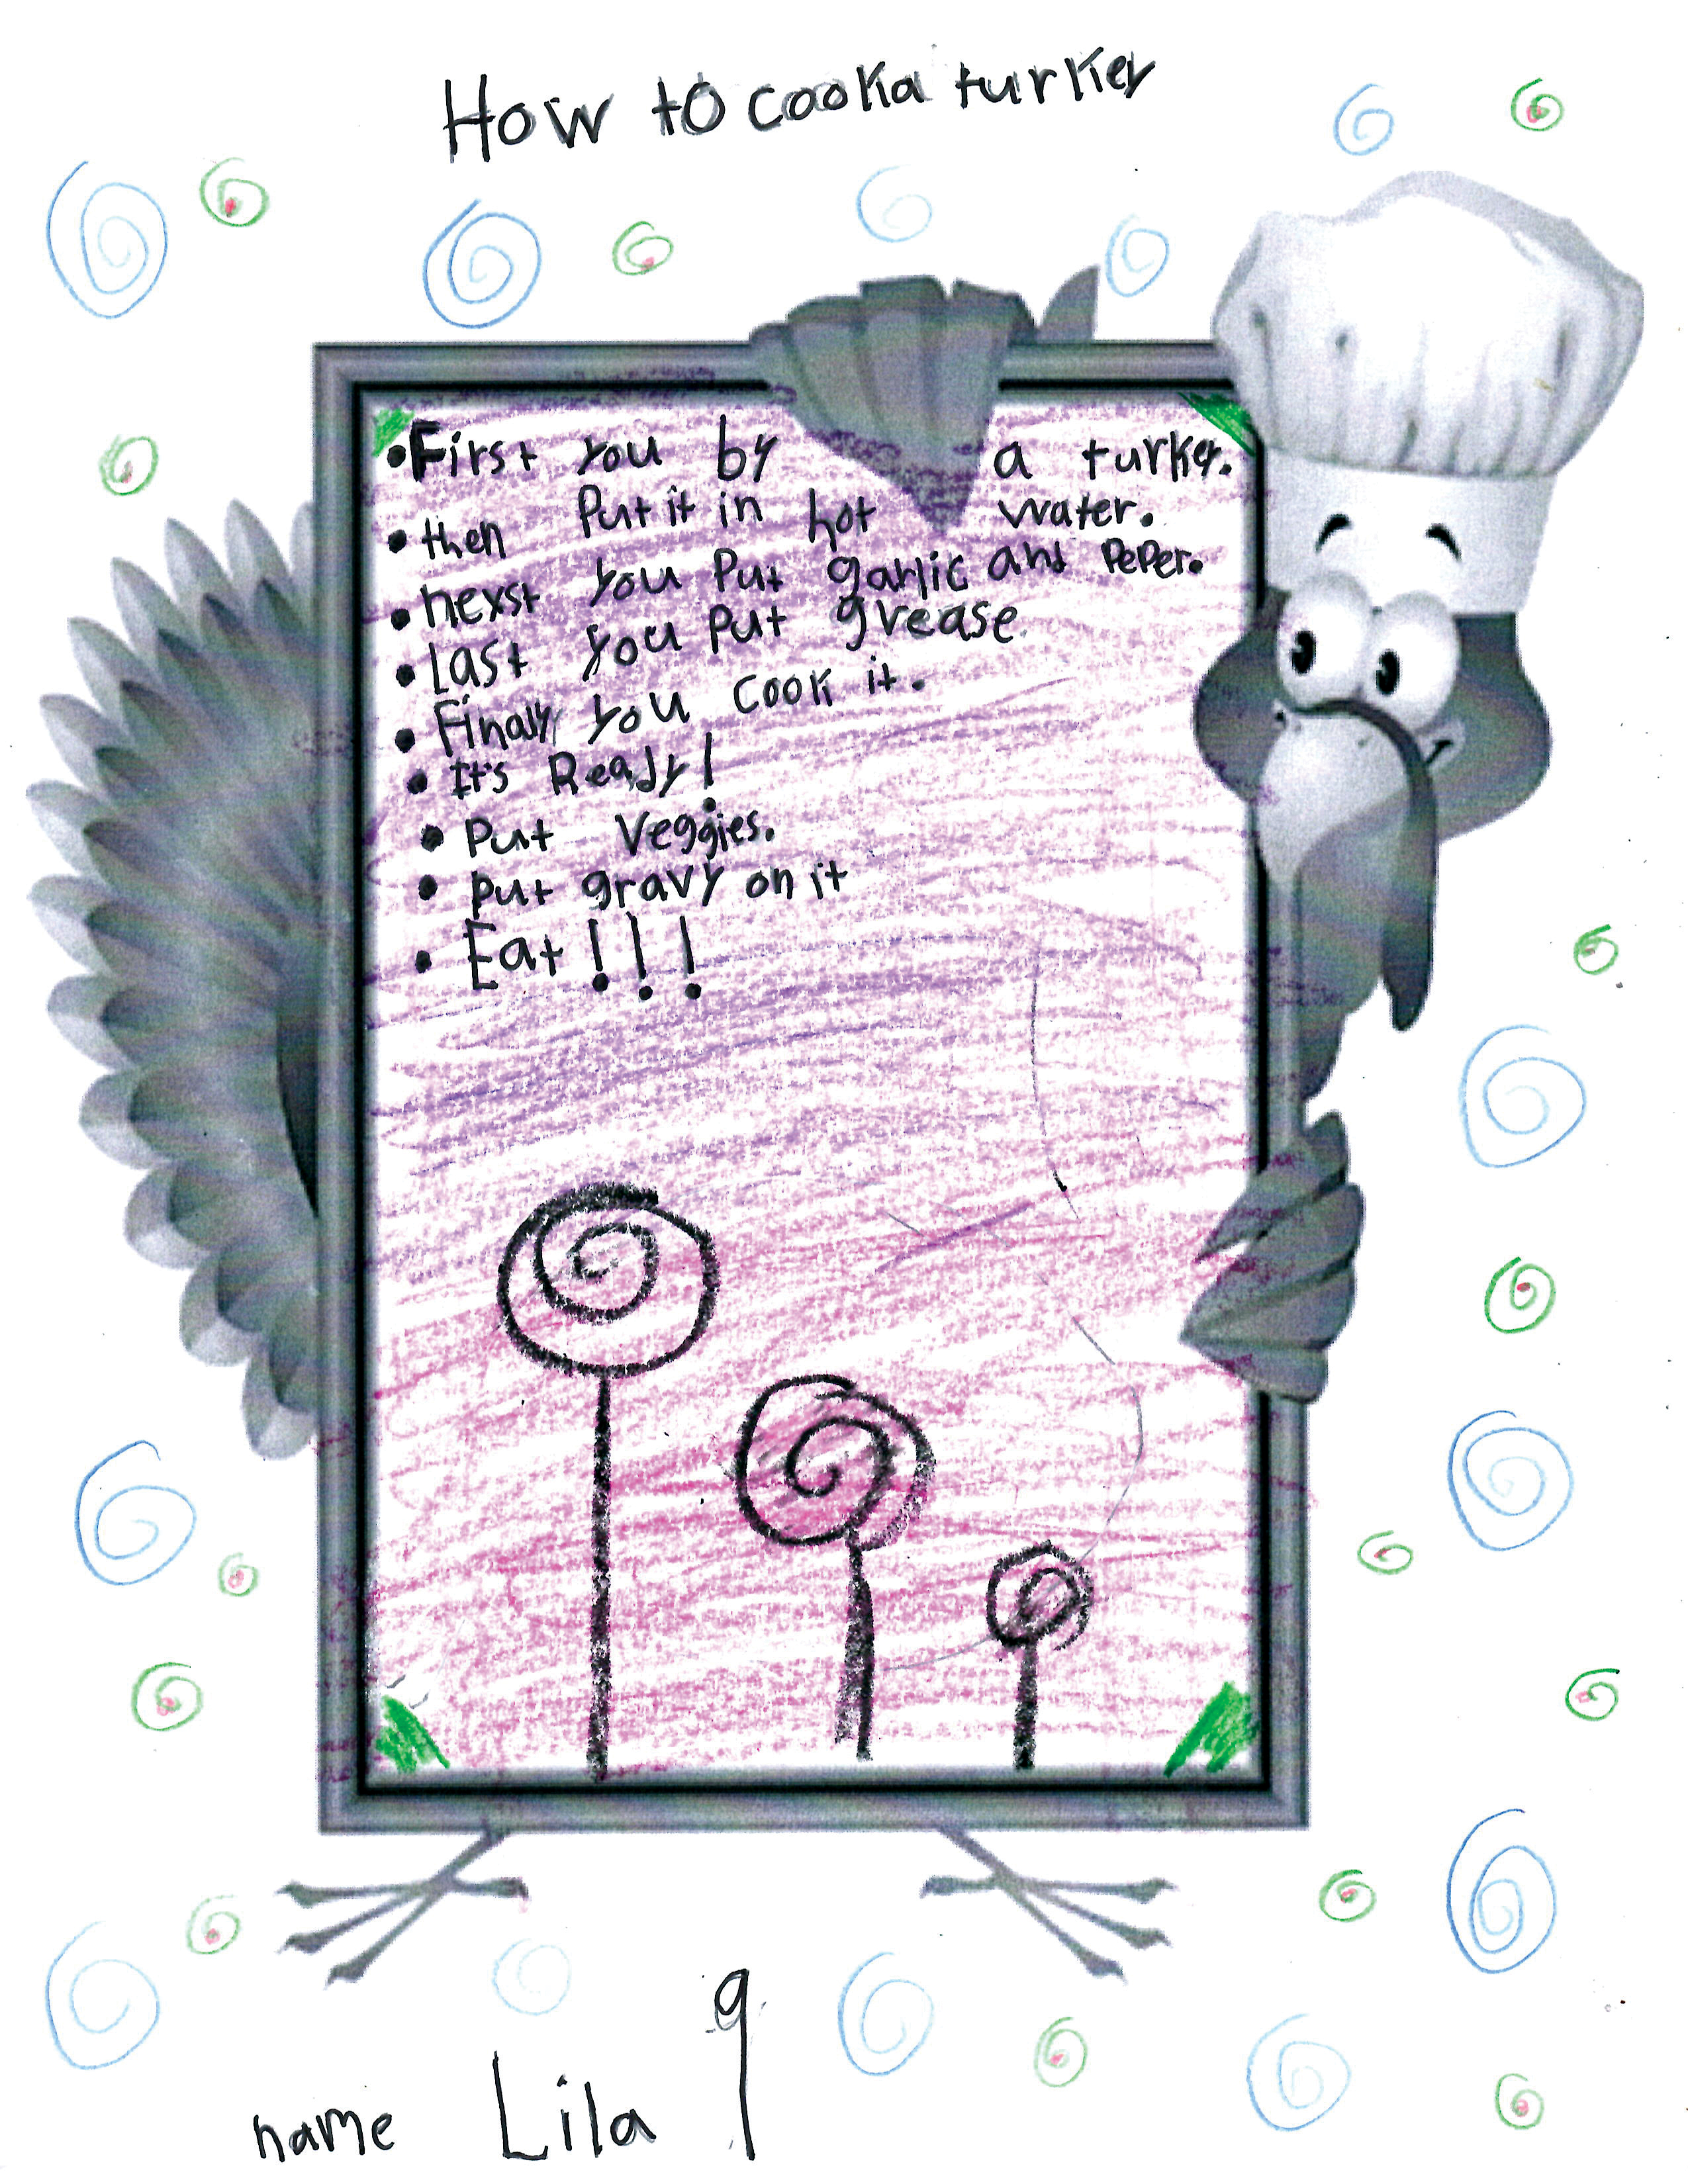 How to cook a turkey
• First you by a turkey.
• then Put it in hot water.
• nexst you Put garlic and PePer.
• Last you Put grease
• Finally you cook it.
• It's Ready!
• Put Veggies.
• put gravy on it
• Eat!!!
name Lila 9